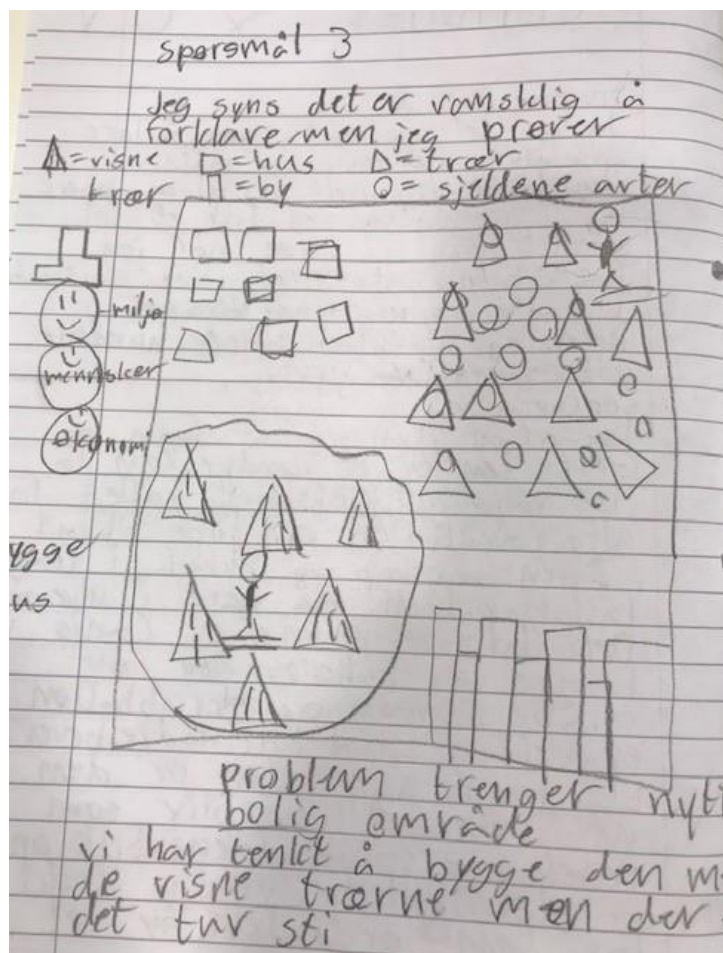 spørsmål 3
Jeg syns det er vamsklig å
forklare men jeg prøver
=visne trær
=hus
=trær
=by
= sjeldene arter
miljø
mennsker
økonomi
ygge
us
problem trenger nyt
bolig område
vi har tenkt å bygge den m
de visne trærne men der
det tur sti